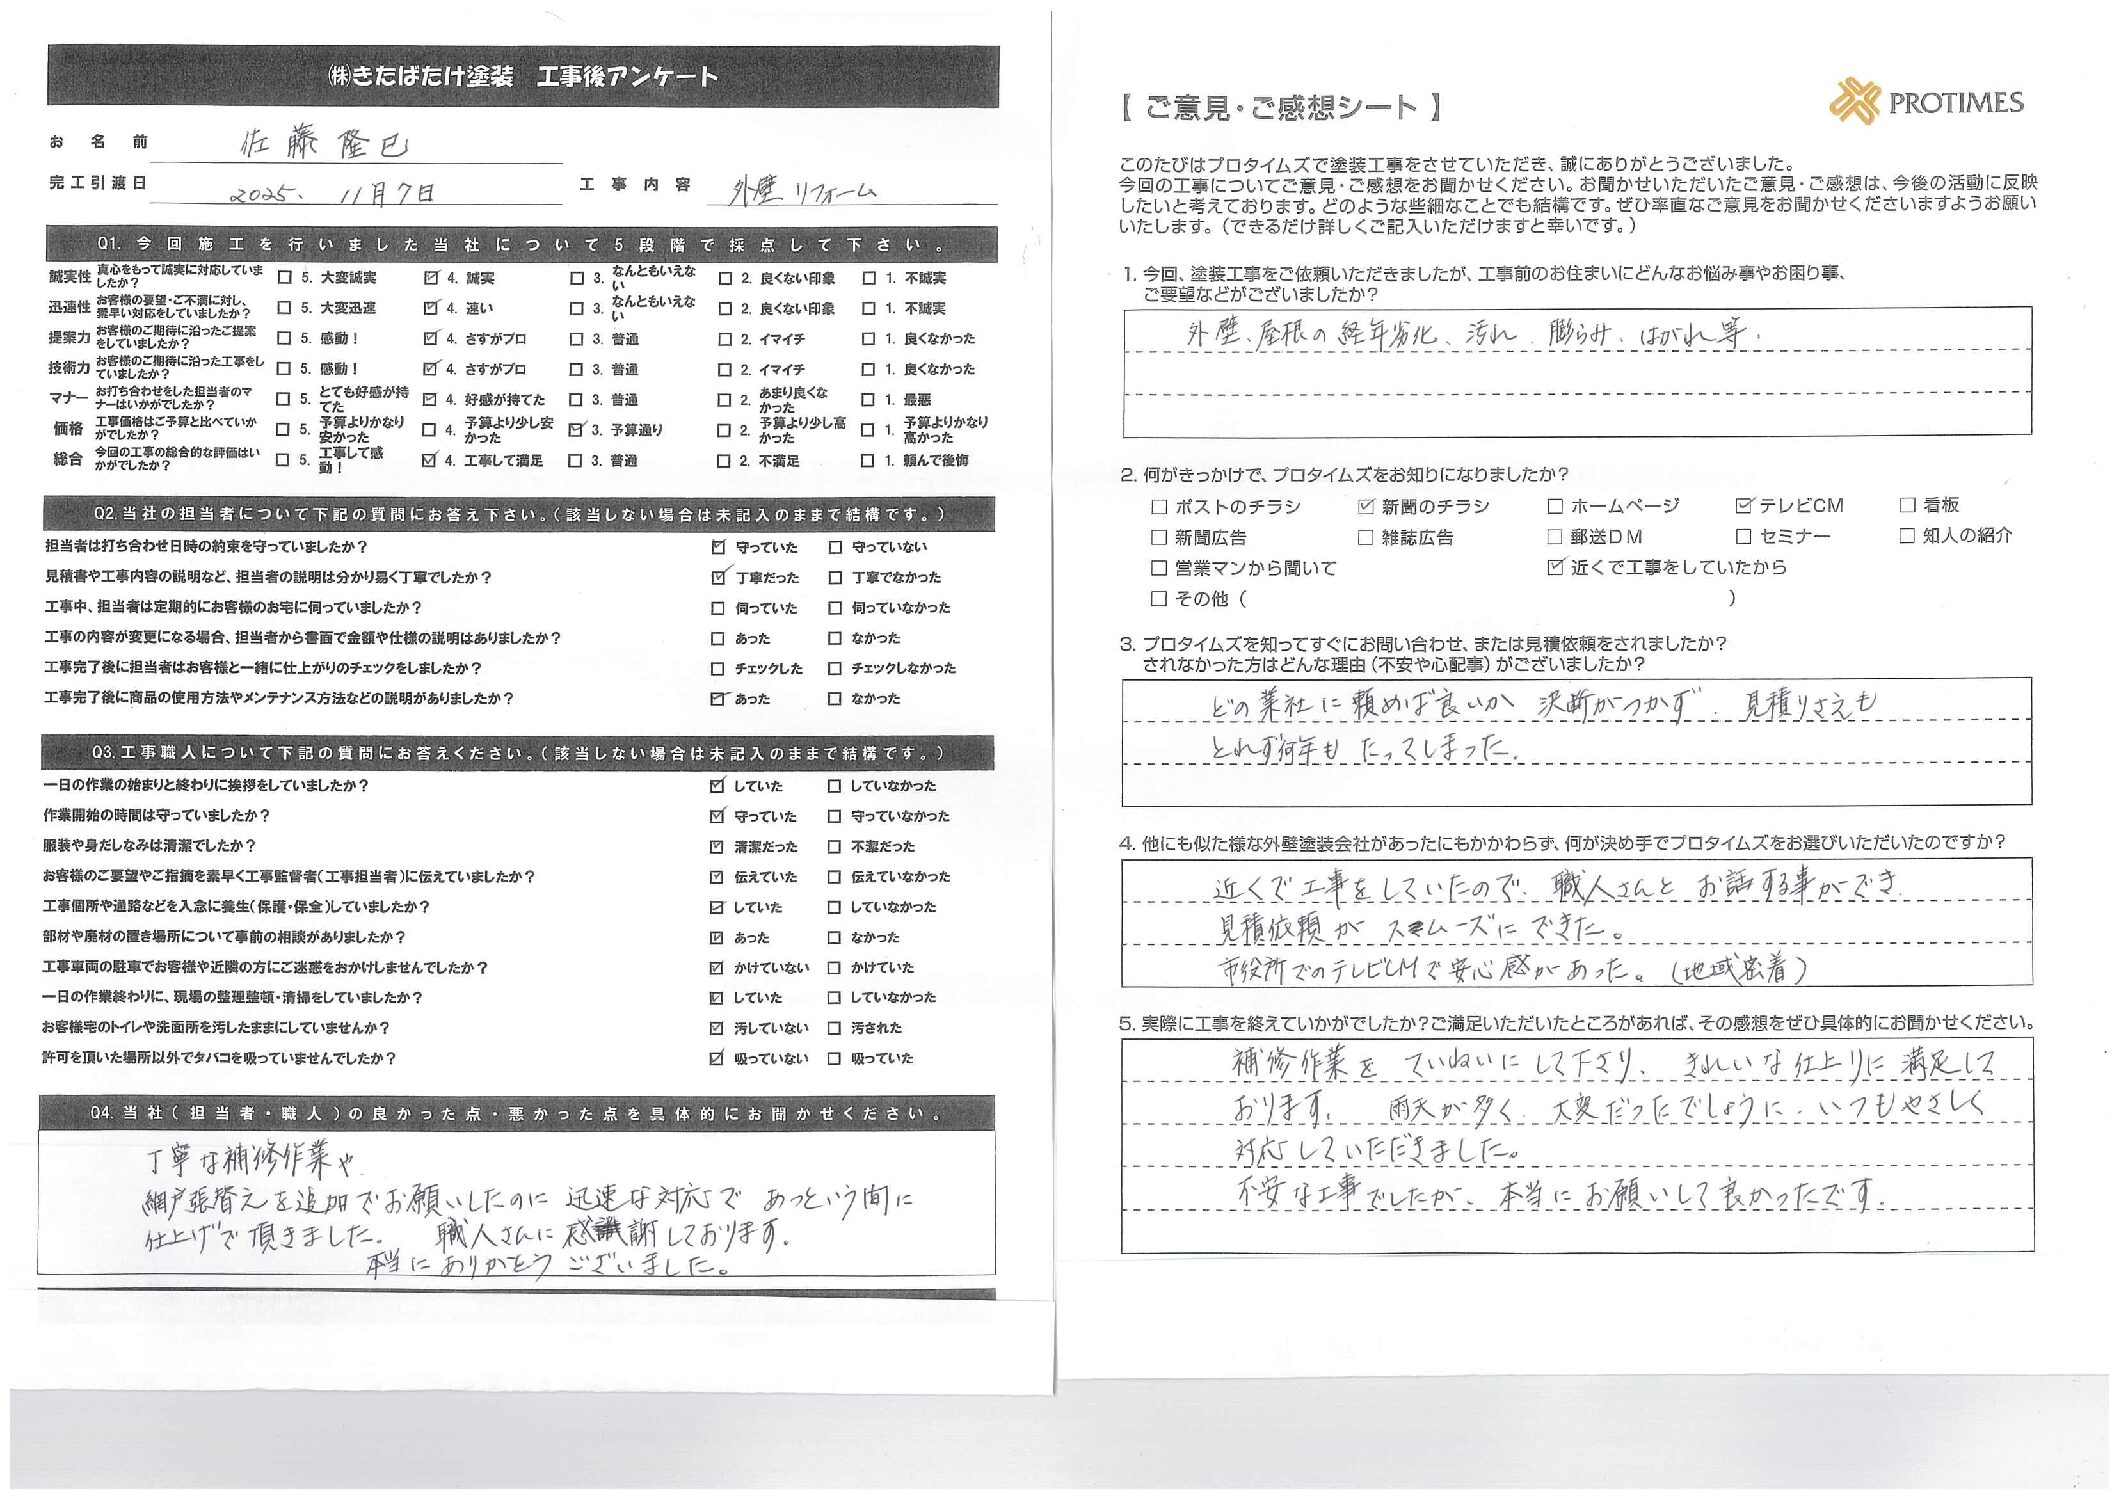 ㈱きたばたけ塗装 工事後アンケート
お名前 佐藤隆巳
完工引渡日 2025. 11月7日 工事内容 外壁リフォーム
Q1. 今回施工を行いました当社について5段階で採点して下さい。
誠実性 真心をもって誠実に対応していましたか? □ 5. 大変誠実 ☑ 4. 誠実 □ 3. なんともいえない □ 2. 良くない印象 □ 1. 不誠実
迅速性 お客様の要望・ご不満に対し、素早い対応をしていましたか? □ 5. 大変迅速 ☑ 4. 速い □ 3. なんともいえない □ 2. 良くない印象 □ 1. 不誠実
提案力 お客様のご期待に沿ったご提案をしていましたか? □ 5. 感動! ☑ 4. さすがプロ □ 3. 普通 □ 2. イマイチ □ 1. 良くなかった
技術力 お客様のご期待に沿った工事をしていましたか? □ 5. 感動! ☑ 4. さすがプロ □ 3. 普通 □ 2. イマイチ □ 1. 良くなかった
マナー お打ち合わせをした担当者のマナーはいかがでしたか? □ 5. とても好感が持てた ☑ 4. 好感が持てた □ 3. 普通 □ 2. あまり良くなかった □ 1. 最悪
価格 工事価格はご予算と比べていかがでしたか? □ 5. 予算よりかなり安かった □ 4. 予算より少し安かった ☑ 3. 予算通り □ 2. 予算より少し高かった □ 1. 予算よりかなり高かった
総合 今回の工事の総合的な評価はいかがでしたか? □ 5. 工事して感動! ☑ 4. 工事して満足 □ 3. 普通 □ 2. 不満足 □ 1. 頼んで後悔
Q2.当社の担当者について下記の質問にお答え下さい。(該当しない場合は未記入のままで結構です。)
担当者は打ち合わせ日時の約束を守っていましたか? ☑ 守っていた □ 守っていない
見積書や工事内容の説明など、担当者の説明は分かり易く丁寧でしたか? ☑ 丁寧だった □ 丁寧でなかった
工事中、担当者は定期的にお客様のお宅に伺っていましたか? □ 伺っていた □ 伺っていなかった
工事の内容が変更になる場合、担当者から書面で金額や仕様の説明はありましたか? □ あった □ なかった
工事完了後に担当者はお客様と一緒に仕上がりのチェックをしましたか? □ チェックした □ チェックしなかった
工事完了後に商品の使用方法やメンテナンス方法などの説明がありましたか? ☑ あった □ なかった
Q3.工事職人について下記の質問にお答えください。(該当しない場合は未記入のままで結構です。)
一日の作業の始まりと終わりに挨拶をしていましたか? ☑ していた □ していなかった
作業開始の時間は守っていましたか? ☑ 守っていた □ 守っていなかった
服装や身だしなみは清潔でしたか? ☑ 清潔だった □ 不潔だった
お客様のご要望やご指摘を素早く工事監督者(工事担当者)に伝えていましたか? ☑ 伝えていた □ 伝えていなかった
工事個所や通路などを入念に養生(保護・保全)していましたか? ☑ していた □ していなかった
部材や廃材の置き場所について事前の相談がありましたか? ☑ あった □ なかった
工事車両の駐車でお客様や近隣の方にご迷惑をおかけしませんでしたか? ☑ かけていない □ かけていた
一日の作業終わりに、現場の整理整頓・清掃をしていましたか? ☑ していた □ していなかった
お客様宅のトイレや洗面所を汚したままにしていませんか? ☑ 汚していない □ 汚された
許可を頂いた場所以外でタバコを吸っていませんでしたか? ☑ 吸っていない □ 吸っていた
Q4.当社(担当者・職人)の良かった点・悪かった点を具体的にお聞かせください。
丁寧な補修作業や
網戸張替えを追加でお願いしたのに 迅速な対応で あっという間に
仕上げで頂きました。 職人さんに感謝しております。
本当にありがとうございました。
【ご意見・ご感想シート】
PROTIMES
このたびはプロタイムズで塗装工事をさせていただき、誠にありがとうございました。
今回の工事についてご意見・ご感想をお聞かせください。お聞かせいただいたご意見・ご感想は、今後の活動に反映
したいと考えております。どのような些細なことでも結構です。ぜひ率直なご意見をお聞かせくださいますようお願い
いたします。(できるだけ詳しくご記入いただけますと幸いです。)
1. 今回、塗装工事をご依頼いただきましたが、工事前のお住まいにどんなお悩み事やお困り事、
ご要望などがございましたか?
外壁、屋根の経年劣化、汚れ、膨らみ、はがれ等.
2. 何がきっかけで、プロタイムズをお知りになりましたか?
□ ポストのチラシ ☑ 新聞のチラシ □ ホームページ ☑ テレビCM □ 看板
□ 新聞広告 □ 雑誌広告 □ 郵送DM □ セミナー □ 知人の紹介
□ 営業マンから聞いて ☑ 近くで工事をしていたから
□ その他( )
3. プロタイムズを知ってすぐにお問い合わせ、または見積依頼をされましたか?
されなかった方はどんな理由(不安や心配事)がございましたか?
どの業社に頼めば良いか 決断がつかず、見積りさえも
とれず何年も たってしまった.
4. 他にも似た様な外壁塗装会社があったにもかかわらず、何が決め手でプロタイムズをお選びいただいたのですか?
近くで工事をしていたので、職人さんと お話する事ができ、
見積依頼が スムーズにできた。
市役所でのテレビCMで安心感があった。(地域密着)
5. 実際に工事を終えていかがでしたか?ご満足いただいたところがあれば、その感想をぜひ具体的にお聞かせください。
補修作業を ていねいにして下さり、 きれいな仕上りに満足して
おります。 雨天が多く、大変だったでしょうに、いつもやさしく
対応していただきました。
不安な工事でしたが、本当にお願いして良かったです.